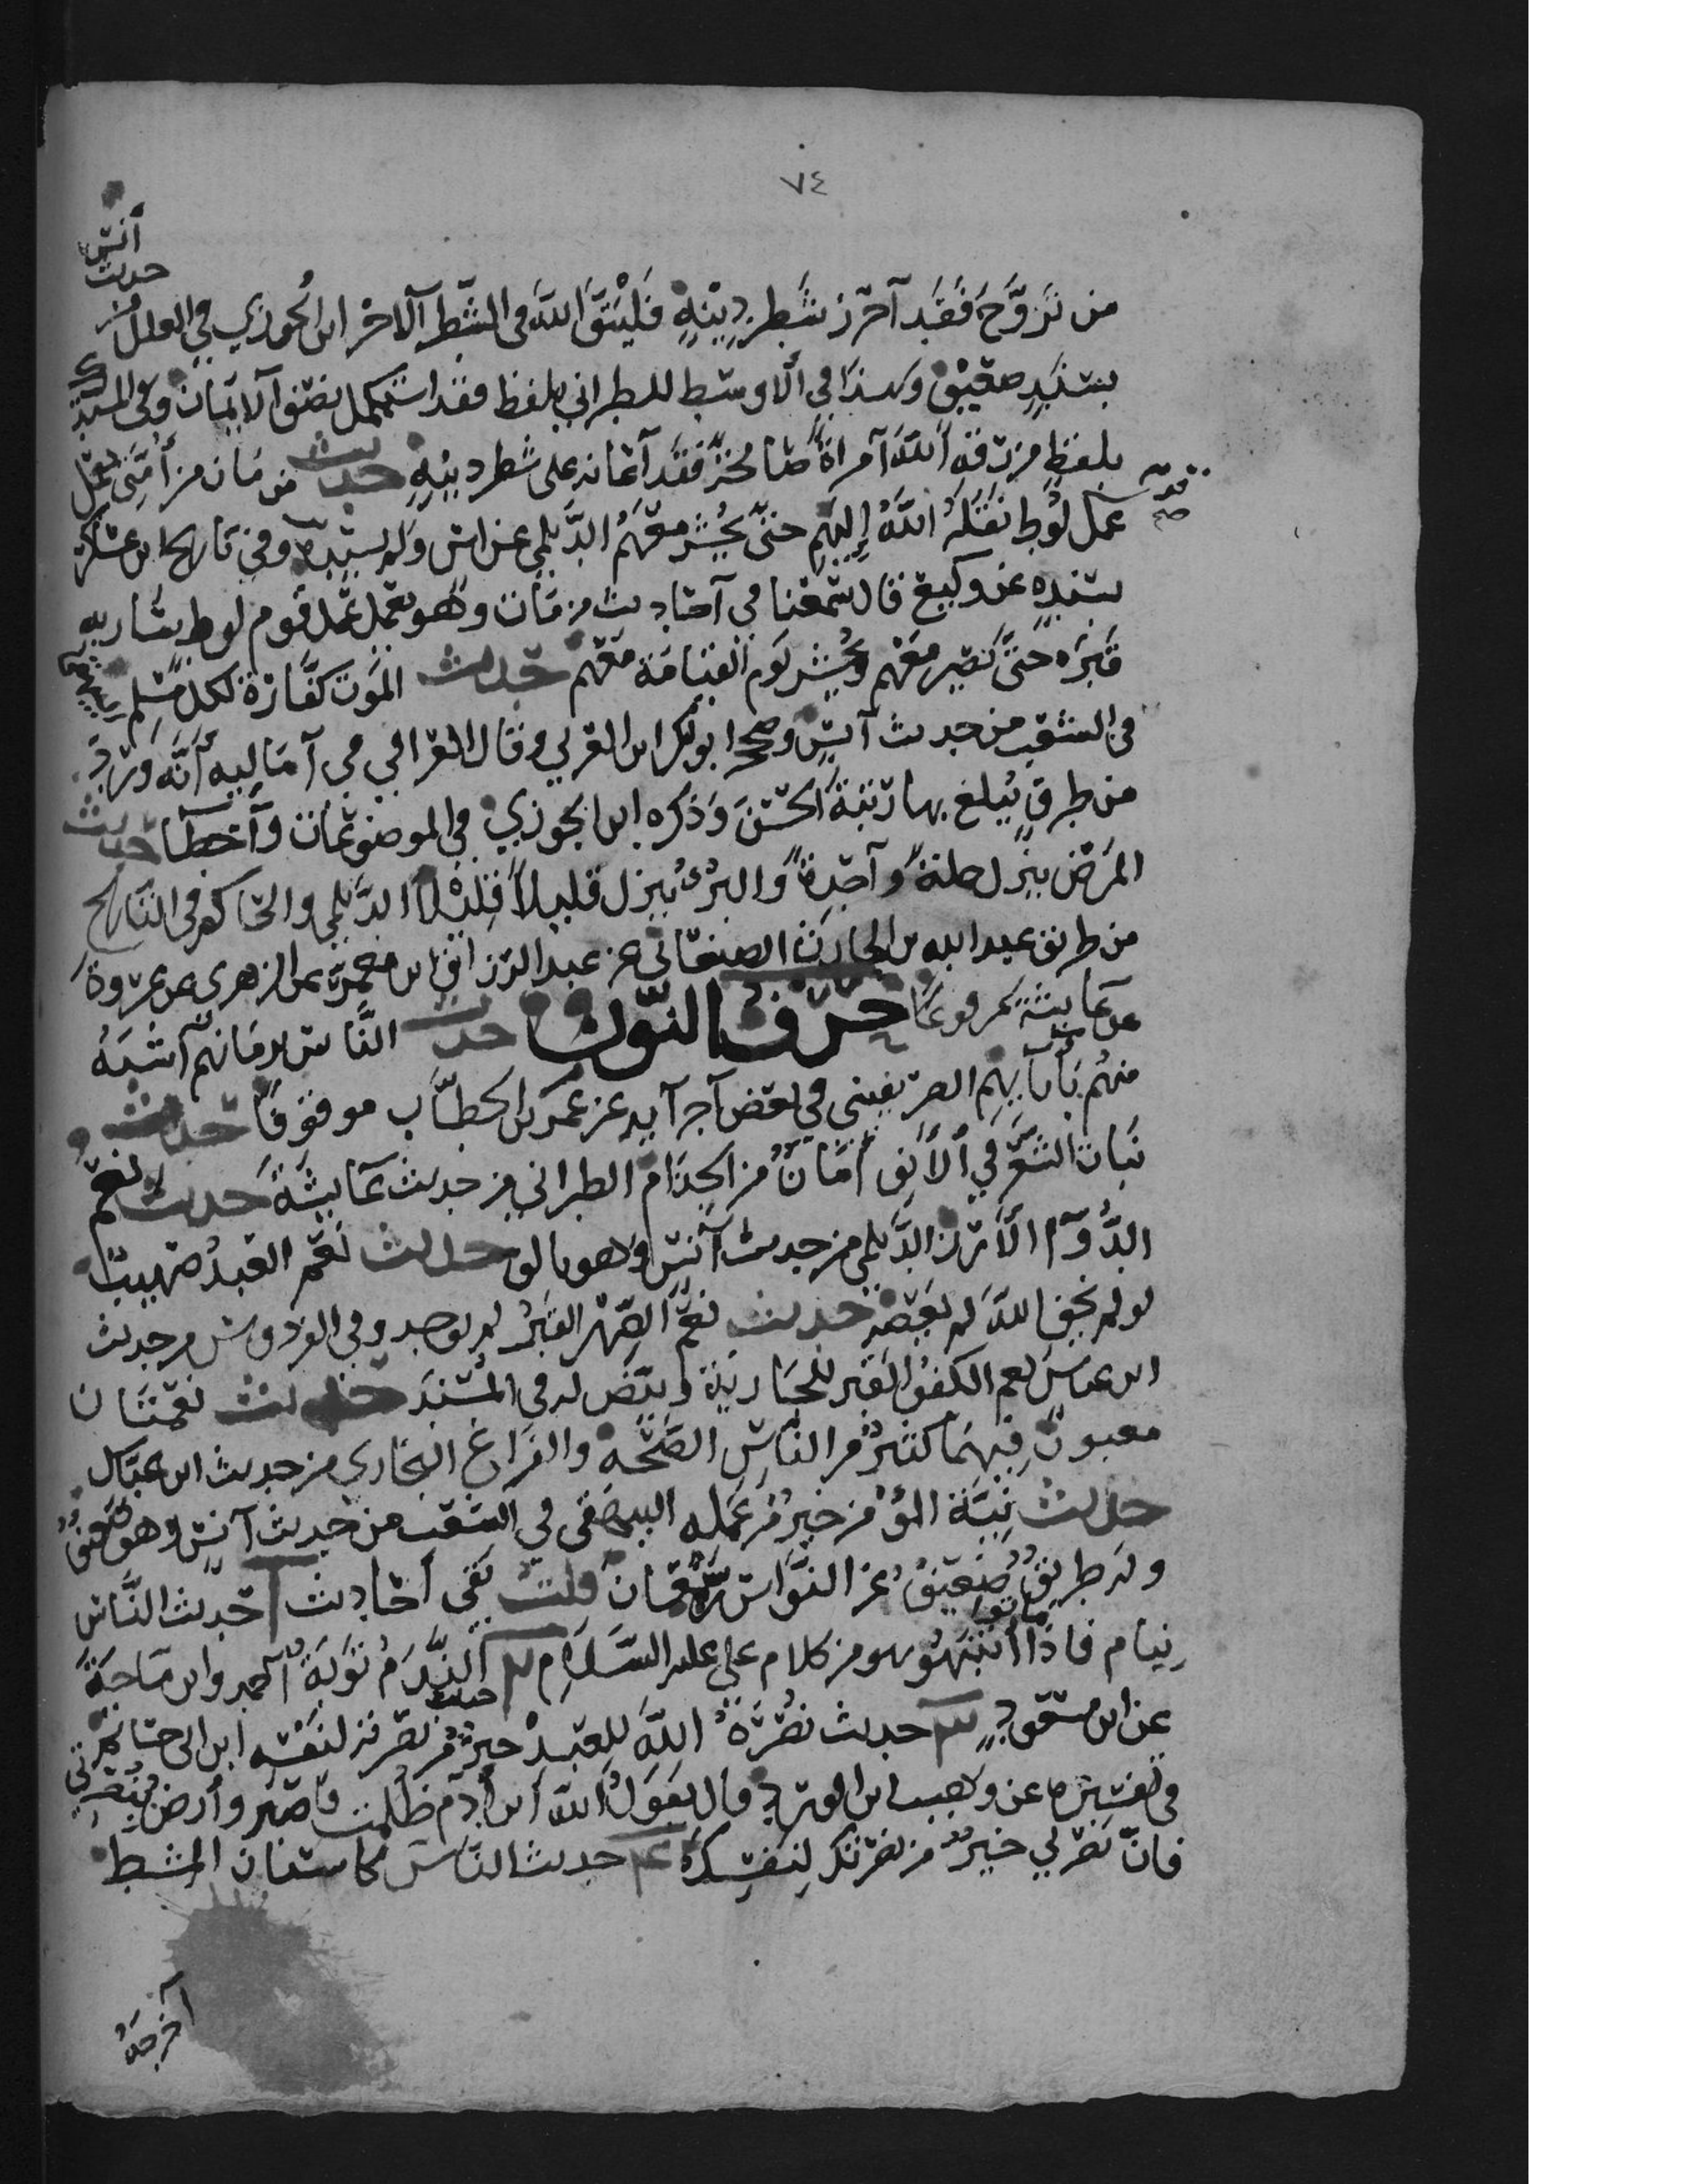 ٧٤
من تزوج فقد أحرز شطر دينه فليتق الله في الشطر الآخر ابن الجوزي في العلل من حديث أنس
بسند ضعيف وهذا في الأوسط للطبراني بلفظ فقد استكمل نصف الإيمان وفي المستدرك
بلفظ من رزقه الله امرأة صالحة فقد أعانه على شطر دينه حديث من مات من أمتي يعمل
عمل قوم لوط نقله الله إليهم حتى يحشر معهم الديلمي عن أنس ولم يسنده وفي تاريخ ابن عساكر
بسنده عن وكيع قال سمعنا في أحاديث من مات وهو يعمل عمل قوم لوط سار به
قبره حتى يصير معهم ويحشر يوم القيامة معهم حديث الموت كفارة لكل مسلم البيهقي
في الشعب من حديث أنس وصححه أبو بكر ابن العربي وقال العراقي في أماليه أنه ورد
من طرق يبلغ بها رتبة الحسن وذكره ابن الجوزي في الموضوعات وأخطأ حديث
المرض ينزل جملة واحدة والبرء ينزل قليلا قليلا الديلمي والحاكم في التاريخ
من طريق عبد الله بن الحارث الصنعاني عن عبد الرزاق ابن معمر عن الزهري عن عروة
عن عايشة مرفوعا حرف النون حديث الناس بزمانهم أشبه
منهم بآبايهم الصريفيني في بعض أجزآيه عن عمر بن الخطاب موقوفا حديث
نبات الشعر في الأنف أمان من الجذام الطبراني من حديث عايشة حديث نعم
الدوآء الأرز الديلمي من حديث أنس وهو تالف حديث نعم العبد صهيب
لو لم يخف الله لم يعصه حديث نعم الصهر القبر لم يوجد وفي الفردوس من حديث
ابن عباس نعم الكفؤ القبر للجارية وبيض له في المسند حديث نعمتان
مغبون فيهما كثير من الناس الصحة والفراغ البخاري من حديث ابن عباس
حديث نية المؤمن خير من عمله البيهقي في الشعب من حديث أنس وهو ضعيف
وله طريق ضعيف عن النواس بن سمعان قلت بقي أحاديث حديث الناس
نيام فاذا ماتوا انتبهوا هو من كلام علي عليه السلام حديث الندم توبة أحمد وابن ماجة
عن ابن مسعود حديث نصرة الله للعبد خير من نصرته لنفسه ابن أبي حاتم
في تفسيره عن وهيب ابن الورد قال يقول الله ابن آدم اذا ظلمت فاصبر وأرض بنصرتي
فان نصرتي خير من نصرتك لنفسك حديث الناس كاسنان المشط
أخرجه